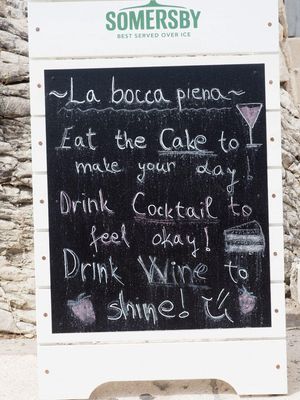 SOMERSBY
BEST SERVED OVER ICE
~La bocca piena~
Eat the Cake to
make your day,
Drink Cocktail to
feel okay!
Drink Wine to
shine!